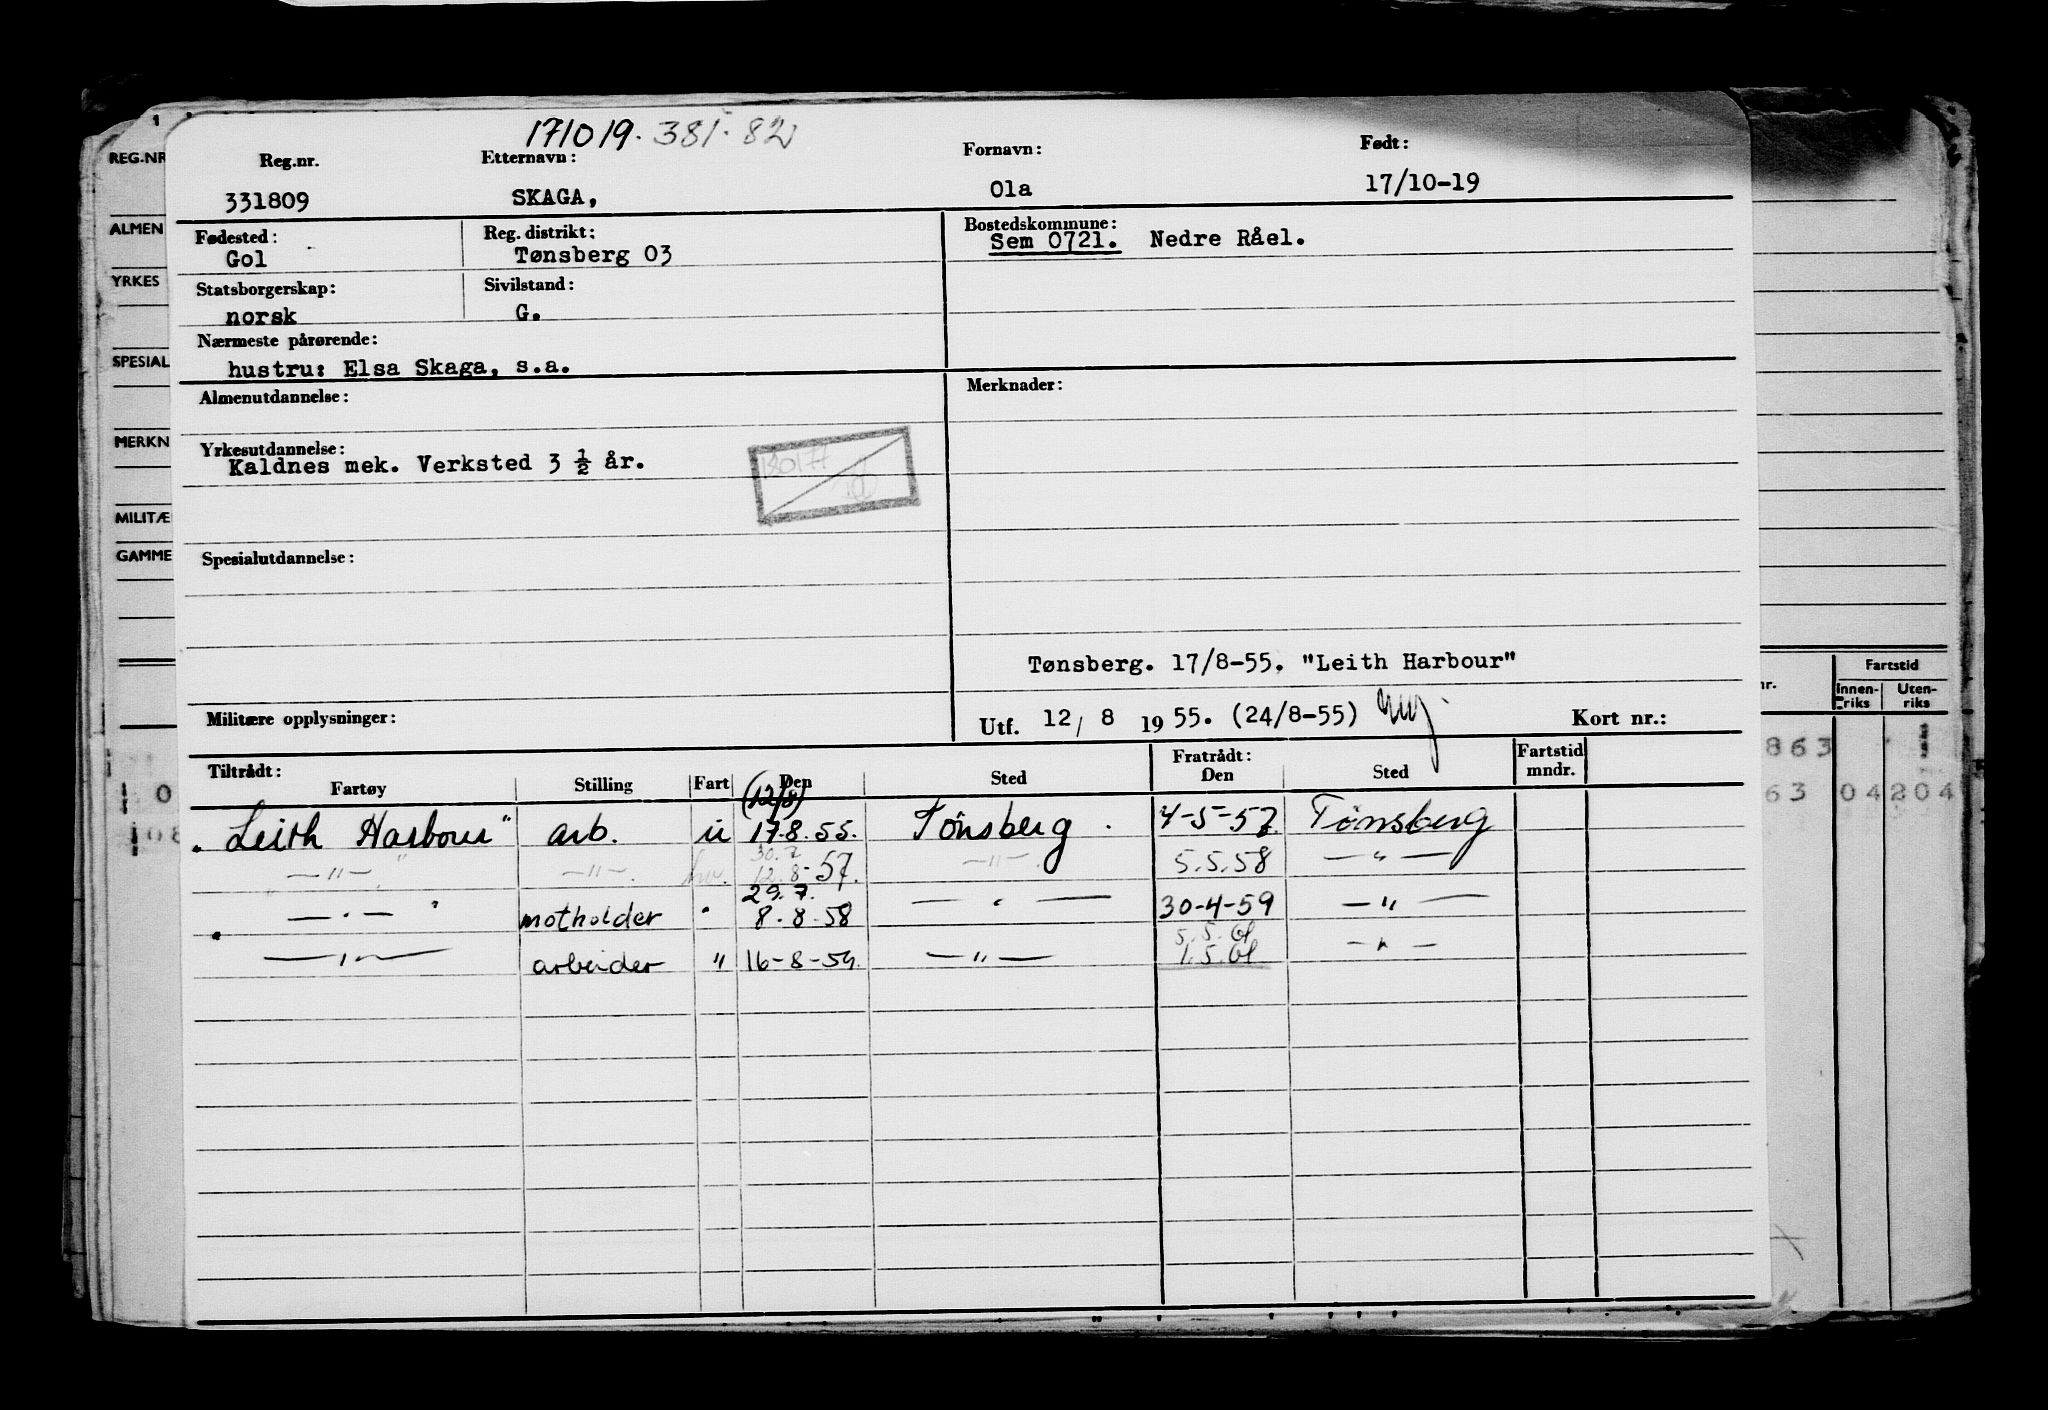 171019. 381.82
Reg.nr. Etternavn: Fornavn: Født:
331809 SKAGA, Ola 17/10-19
Fødested: Reg. distrikt: Bostedskommune:
Gol Tønsberg 03 Sem 0721. Nedre Råel.
Statsborgerskap: Sivilstand:
norsk G.
Nærmeste pårørende:
hustru: Elsa Skaga, s.a.
Almenutdannelse: Merknader:
Yrkesutdannelse:
Kaldnes mek. Verksted 3 ½ år.
Spesialutdannelse:
Tønsberg. 17/8-55. "Leith Harbour"
Militære opplysninger: Utf. 12/8 1955. (24/8-55) Kort nr.:
Tiltrådt: Fratrådt:
Fartøy Stilling Fart Den Sted Den Sted Fartstid mndr.
(12/8)
"Leith Harbour" arb. u 17.8.55. Tønsberg. 4-5-57 Tønsberg
30.7
—"— " —"—. 12.8-57. —"—. 5.5.58 —"—
29.7.
—"— " motholder " 8.8-58 —"— 30-4-59 —"—
5.5.61
—"— arbeider " 16-8-59. —"— 1.5.61 —"—
REG.NR
ALMEN
YRKES
SPESIAL
MERKN
MILITÆ
GAMME
0
08
nr. Fartstid
Innen-riks Uten-riks
863
63 04 204